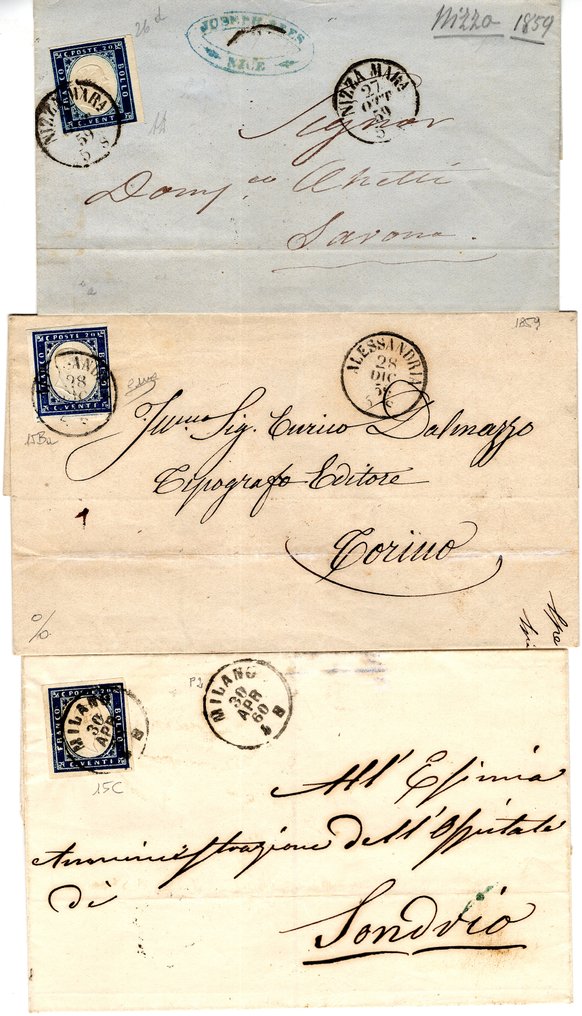 26 d
JOSEPH
NICE
Nizza 1859
C. POSTE 20
FRANCO
BOLLO
C. VENTI
NIZZA MARA
59
5 S
NIZZA MARA
27
OTT
59
5
Signor
Savona
a
1859
C. POSTE 20
FRANCO
BOLLO
C. VENTI
28
ALESSANDRIA
28
DIC
15Ba
Sig. Enrico Dalmazzo
Tipografo Editore
Torino
%
C. POSTE 20
FRANCO
BOLLO
C. VENTI
MILANO
30
APR
MILANO
30
APR
60
15C
All' Esimia
Amministrazione dell' Ospitale
di
Sondrio